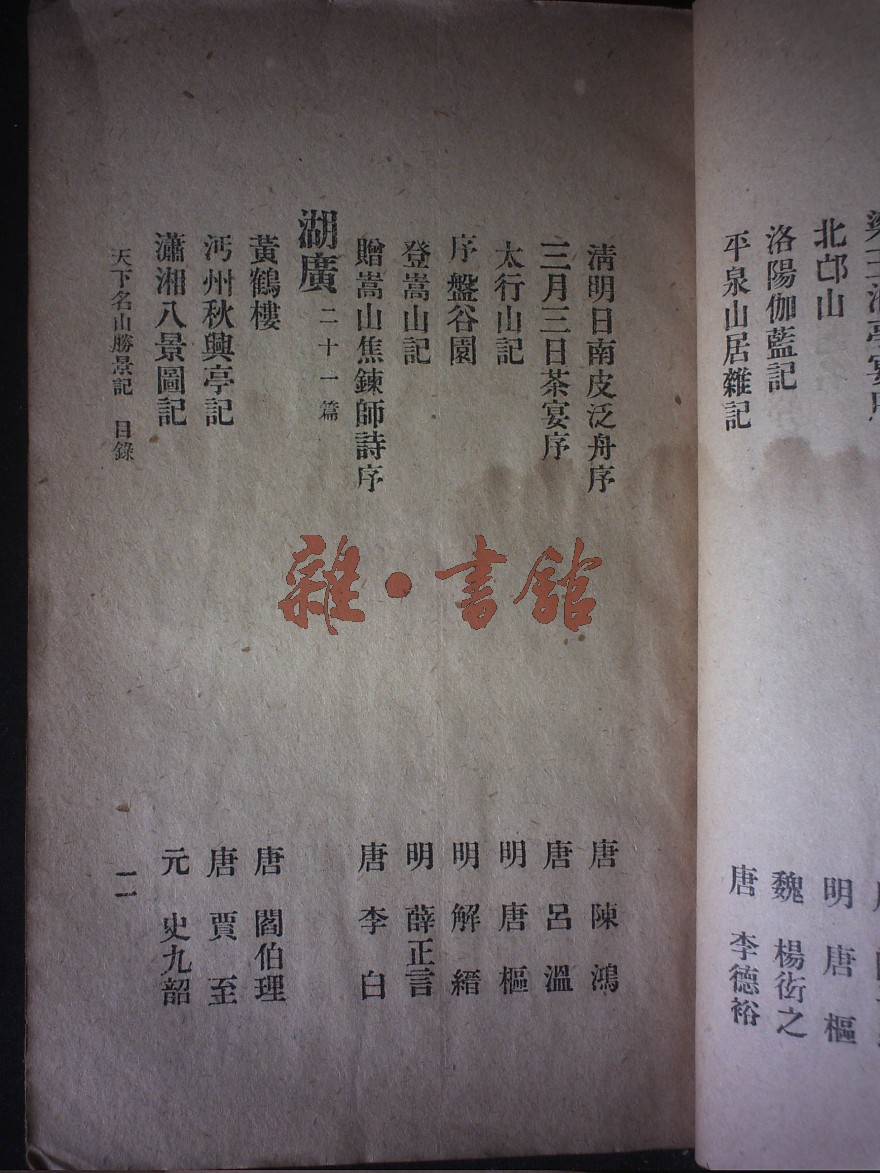 北邙山
明 唐 樞
洛陽伽藍記
魏 楊衒之
平泉山居雜記
唐 李德裕
淸明日南皮泛舟序
唐 陳 鴻
三月三日茶宴序
唐 呂 溫
太行山記
明 唐 樞
序盤谷園
明 解 縉
登嵩山記
明 薛正言
贈嵩山焦鍊師詩序
唐 李 白
湖廣 二十一篇
黃鶴樓
唐 閻伯理
沔州秋興亭記
唐 賈 至
瀟湘八景圖記
元 史九韶
天下名山勝景記 目錄
一一
雜·書館